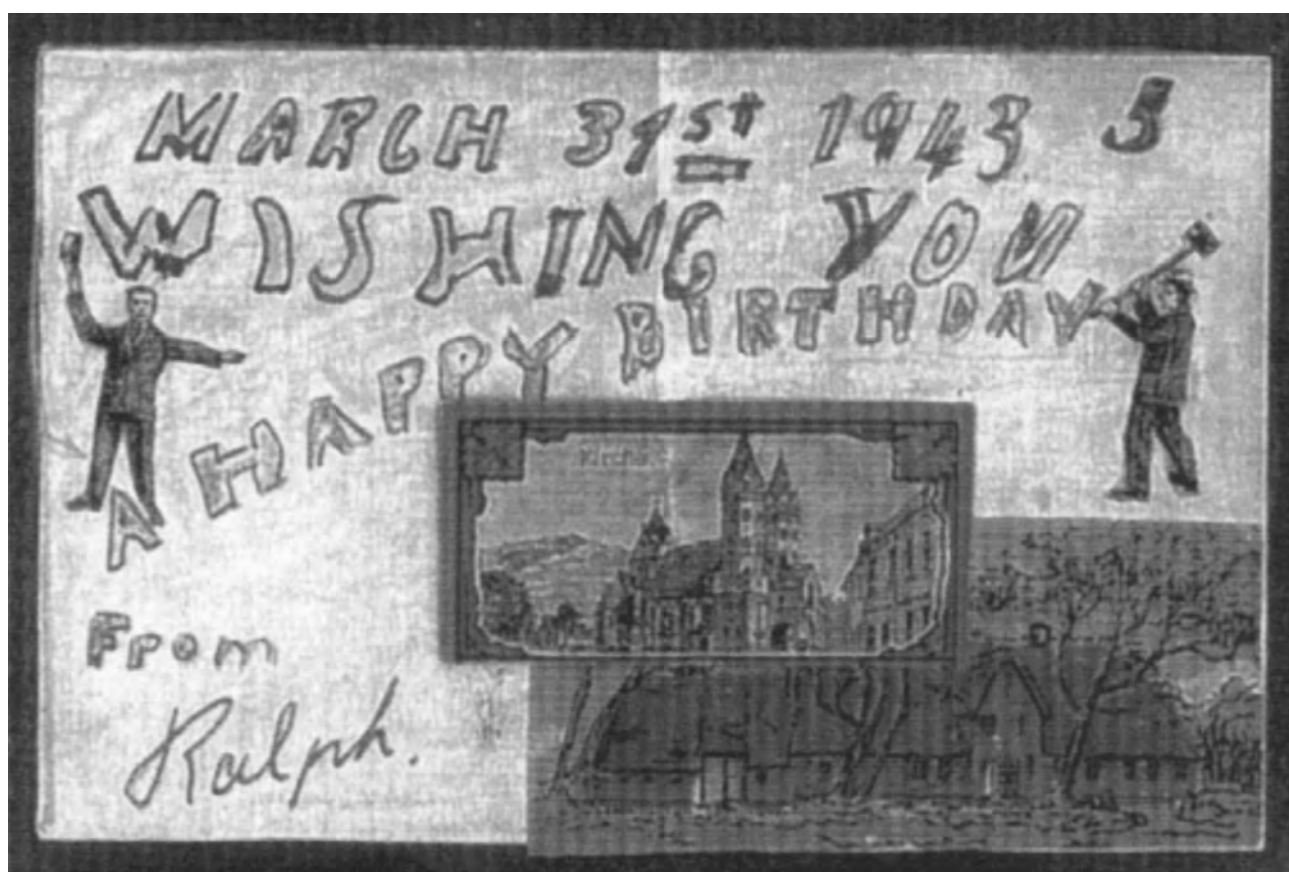 MARCH 31st 1943 5
WISHING YOU
A HAPPY BIRTHDAY
Kirche
From
Ralph.